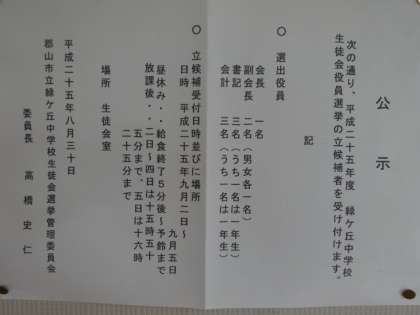 公示
次の通り、平成二十五年度 緑ケ丘中学校
生徒会役員選挙の立候補者を受け付けます。
記
○ 選出役員
会長 一名
副会長 二名（男女各一名）
書記 三名（うち一名は一年生）
会計 三名（うち一名は一年生）
○ 立候補受付日時並びに場所
日時 平成二十五年九月二日～
九月五日
昼休み・・給食終了５分後～予鈴まで
放課後・・二日～四日は十五時五十
五分まで、五日は十六時
二十五分まで
場所 生徒会室
平成二十五年八月三十日
郡山市立緑ケ丘中学校生徒会選挙管理委員会
委員長 高橋史仁